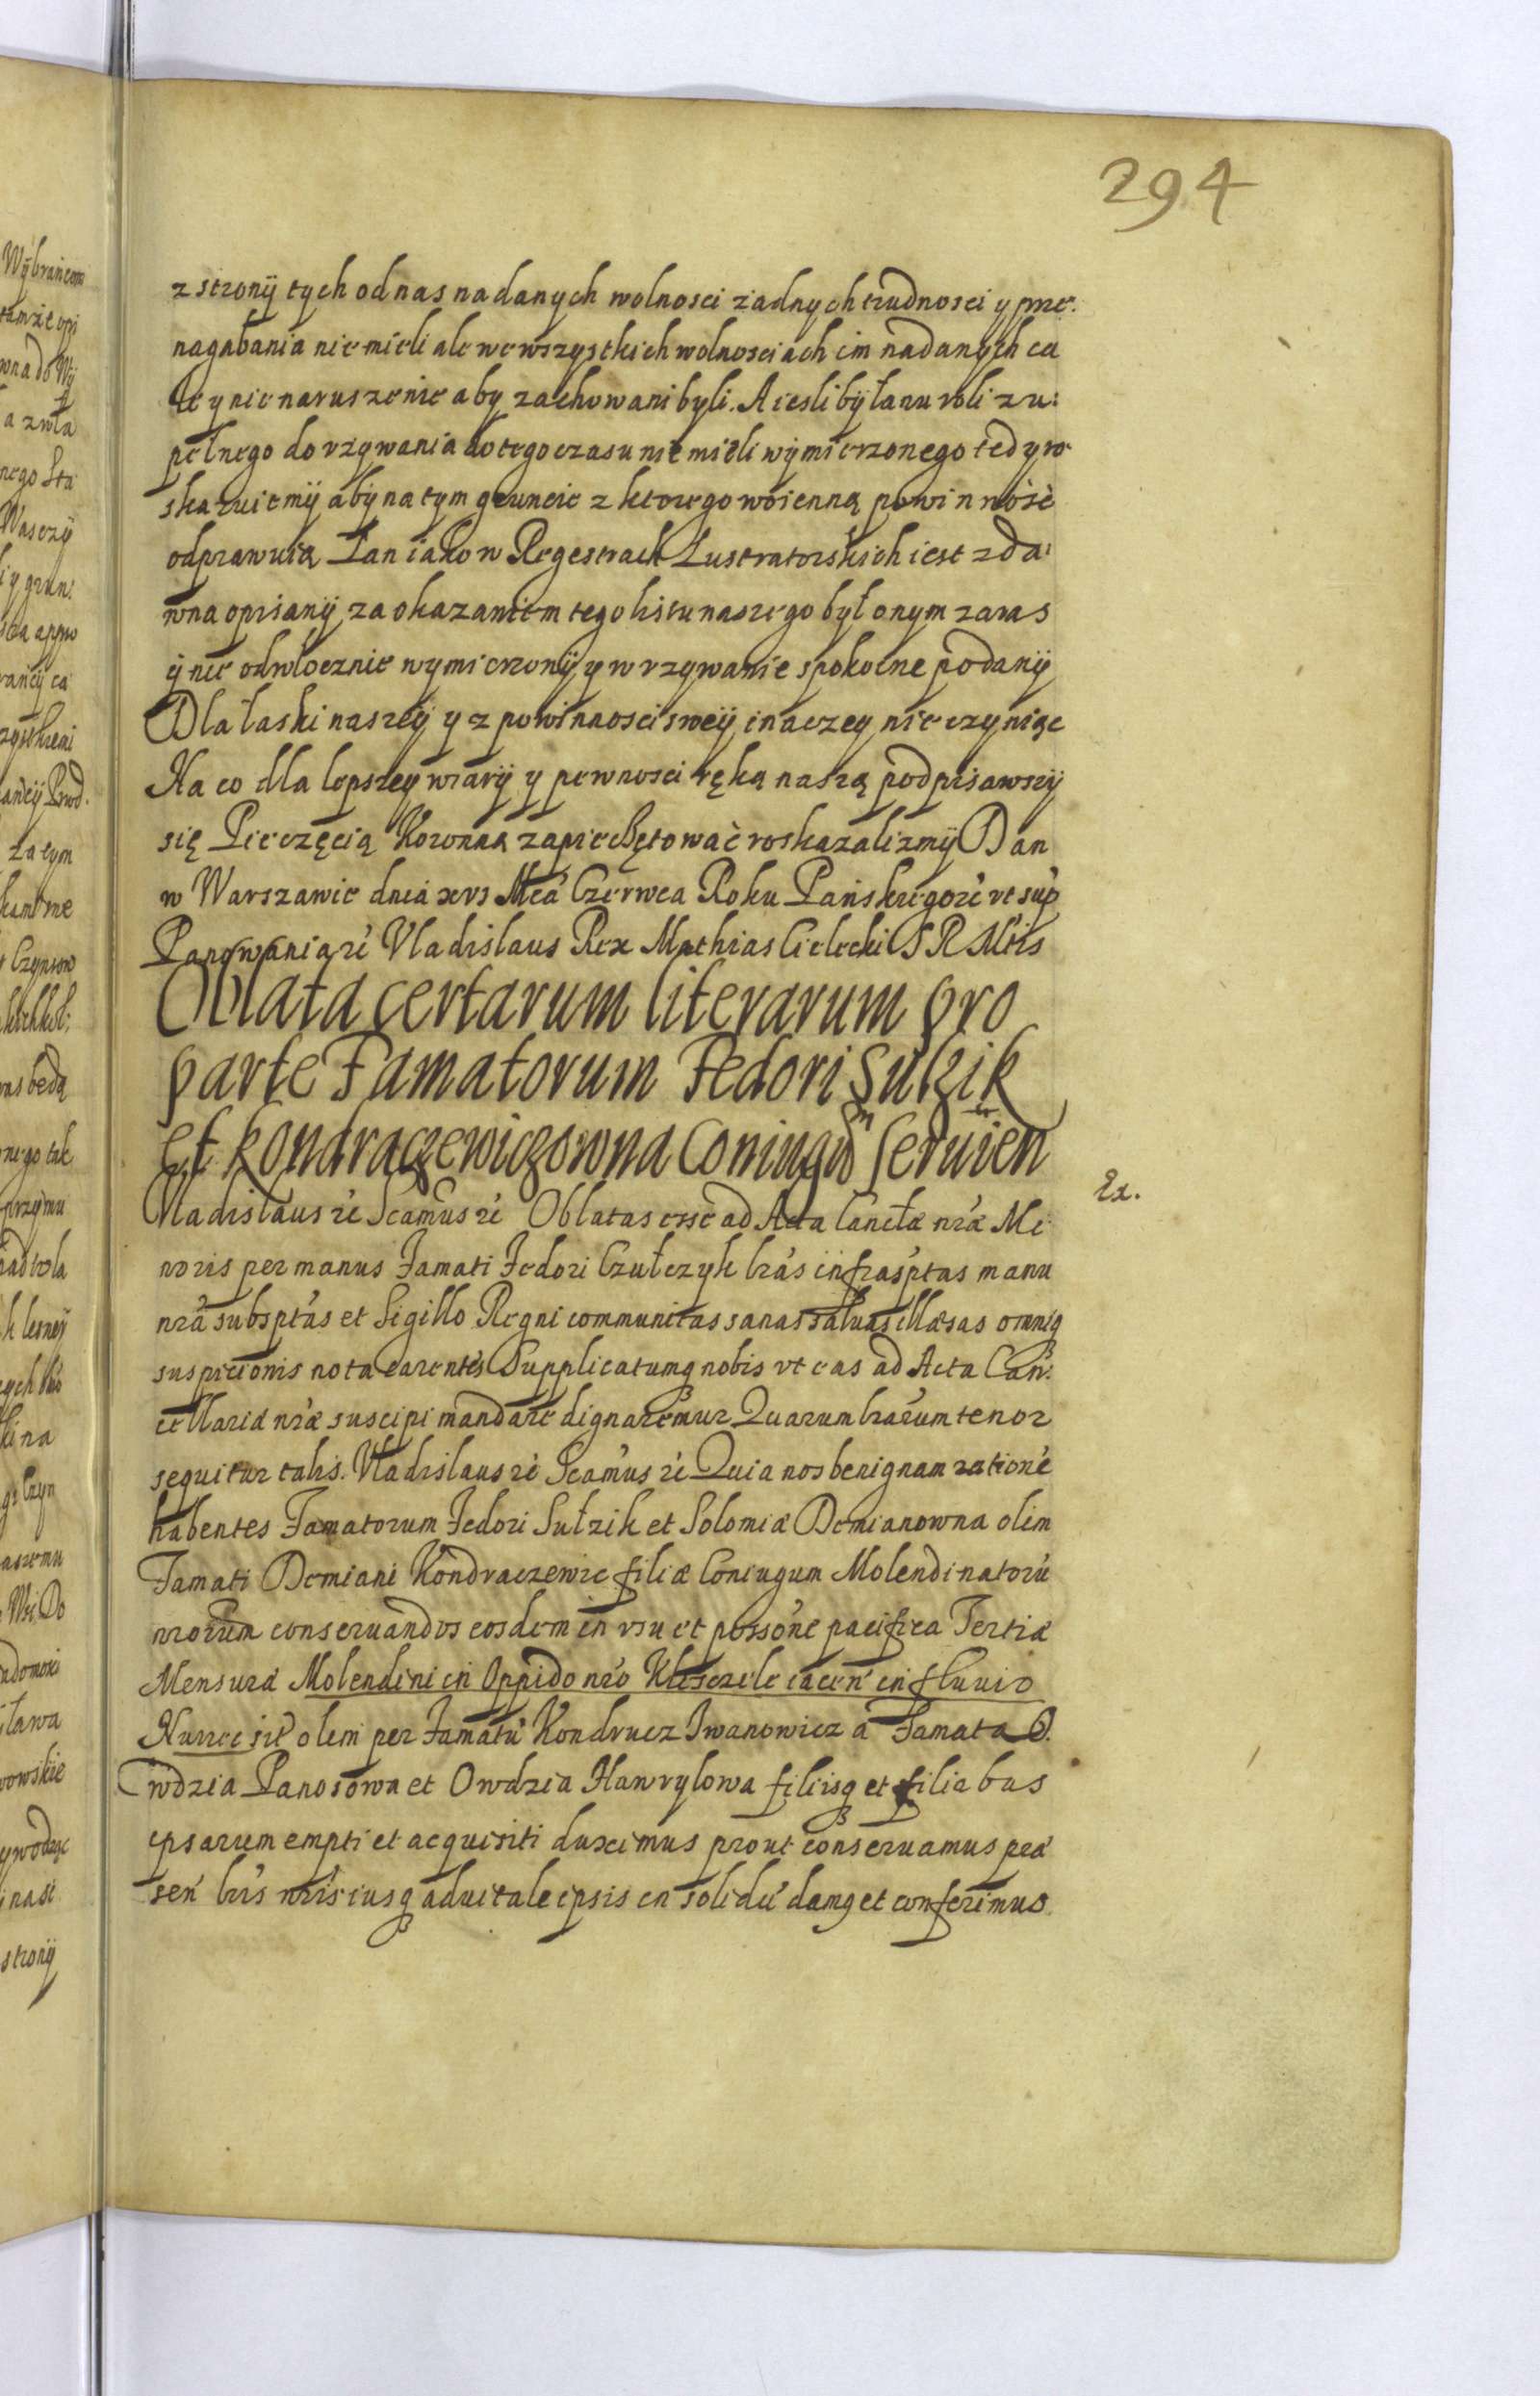 294
z strony tych od nas nadanych wolnosci żadnych trudnosci y prze:
nagabania nie mieli ale we wszystkich wolnosciach im nadanych ca
le y nienaruszenie aby zachowani byli. A iesliby łanu roli zu:
pełnego do vzywania do tego czasu nie mieli wymierzonego tedy ro
skazuiemy aby na tym gruncie z ktorego woienną powinność
odprawuią Łan iako w Regestrach Lustratorskich iest zda:
wna opisany za okazaniem tego listu naszego był onym zaras
y nie odwłocznie wymierzony y w vzywanie spokoine podany
Dla łaski naszey y z powinnosci swey inaczey nie czyniąc
Na co dla lepszey wiary y pewnosci ręką naszą podpisawszy
się Pieczęcią Koronną zapieczętować roskazalismy Dan
w Warszawie dnia xvi Mca Czerwca Roku Pańskiego zć vt sup
Panowania zć Vladislaus Rex Mathias Cielecki S R Mtis
Oblata certarum literarum pro
parte Famatorum Fedori Sulzik
et Kondraczewiczowna Coniugum Seruien
Ex.
Vladislaus zć Scamus zć Oblatas esse ad Acta Cancellæ nræ Mi
noris per manus Famati Fedori Czulczyk lras infrasptas manu
nra subsptas et Sigillo Regni communitas sanas saluas illæsas omniq
suspicionis nota carentes Supplicatumq nobis vt eas ad Acta Can:
cellariæ nræ suscipi mandare dignaremur Quarum lrarum tenor
sequitur talis. Vladislaus zć Scamus zć Quia nos benignam rationé
habentes Famatorum Fedori Sulzik et Solomiæ Demianowna olim
Famati Demiani Kondraczewic filiæ Coniugum Molendinatorū
nrorum conseruandos eosdem in vsu et possone pacifica Tertiæ
Mensuræ Molendini in Oppido nro Kleszczele iacen in fluuio
Nurzec sit olim per Famatū Kondracz Iwanowicz a Famata O.
wdzia Panosowa et Owdzia Hawrylowa filiisq et filiabus
ipsarum empti et acquisiti duximus prout conseruamus præ
sen lris nris iusq aduitale ipsis in solidū damq et conferimus